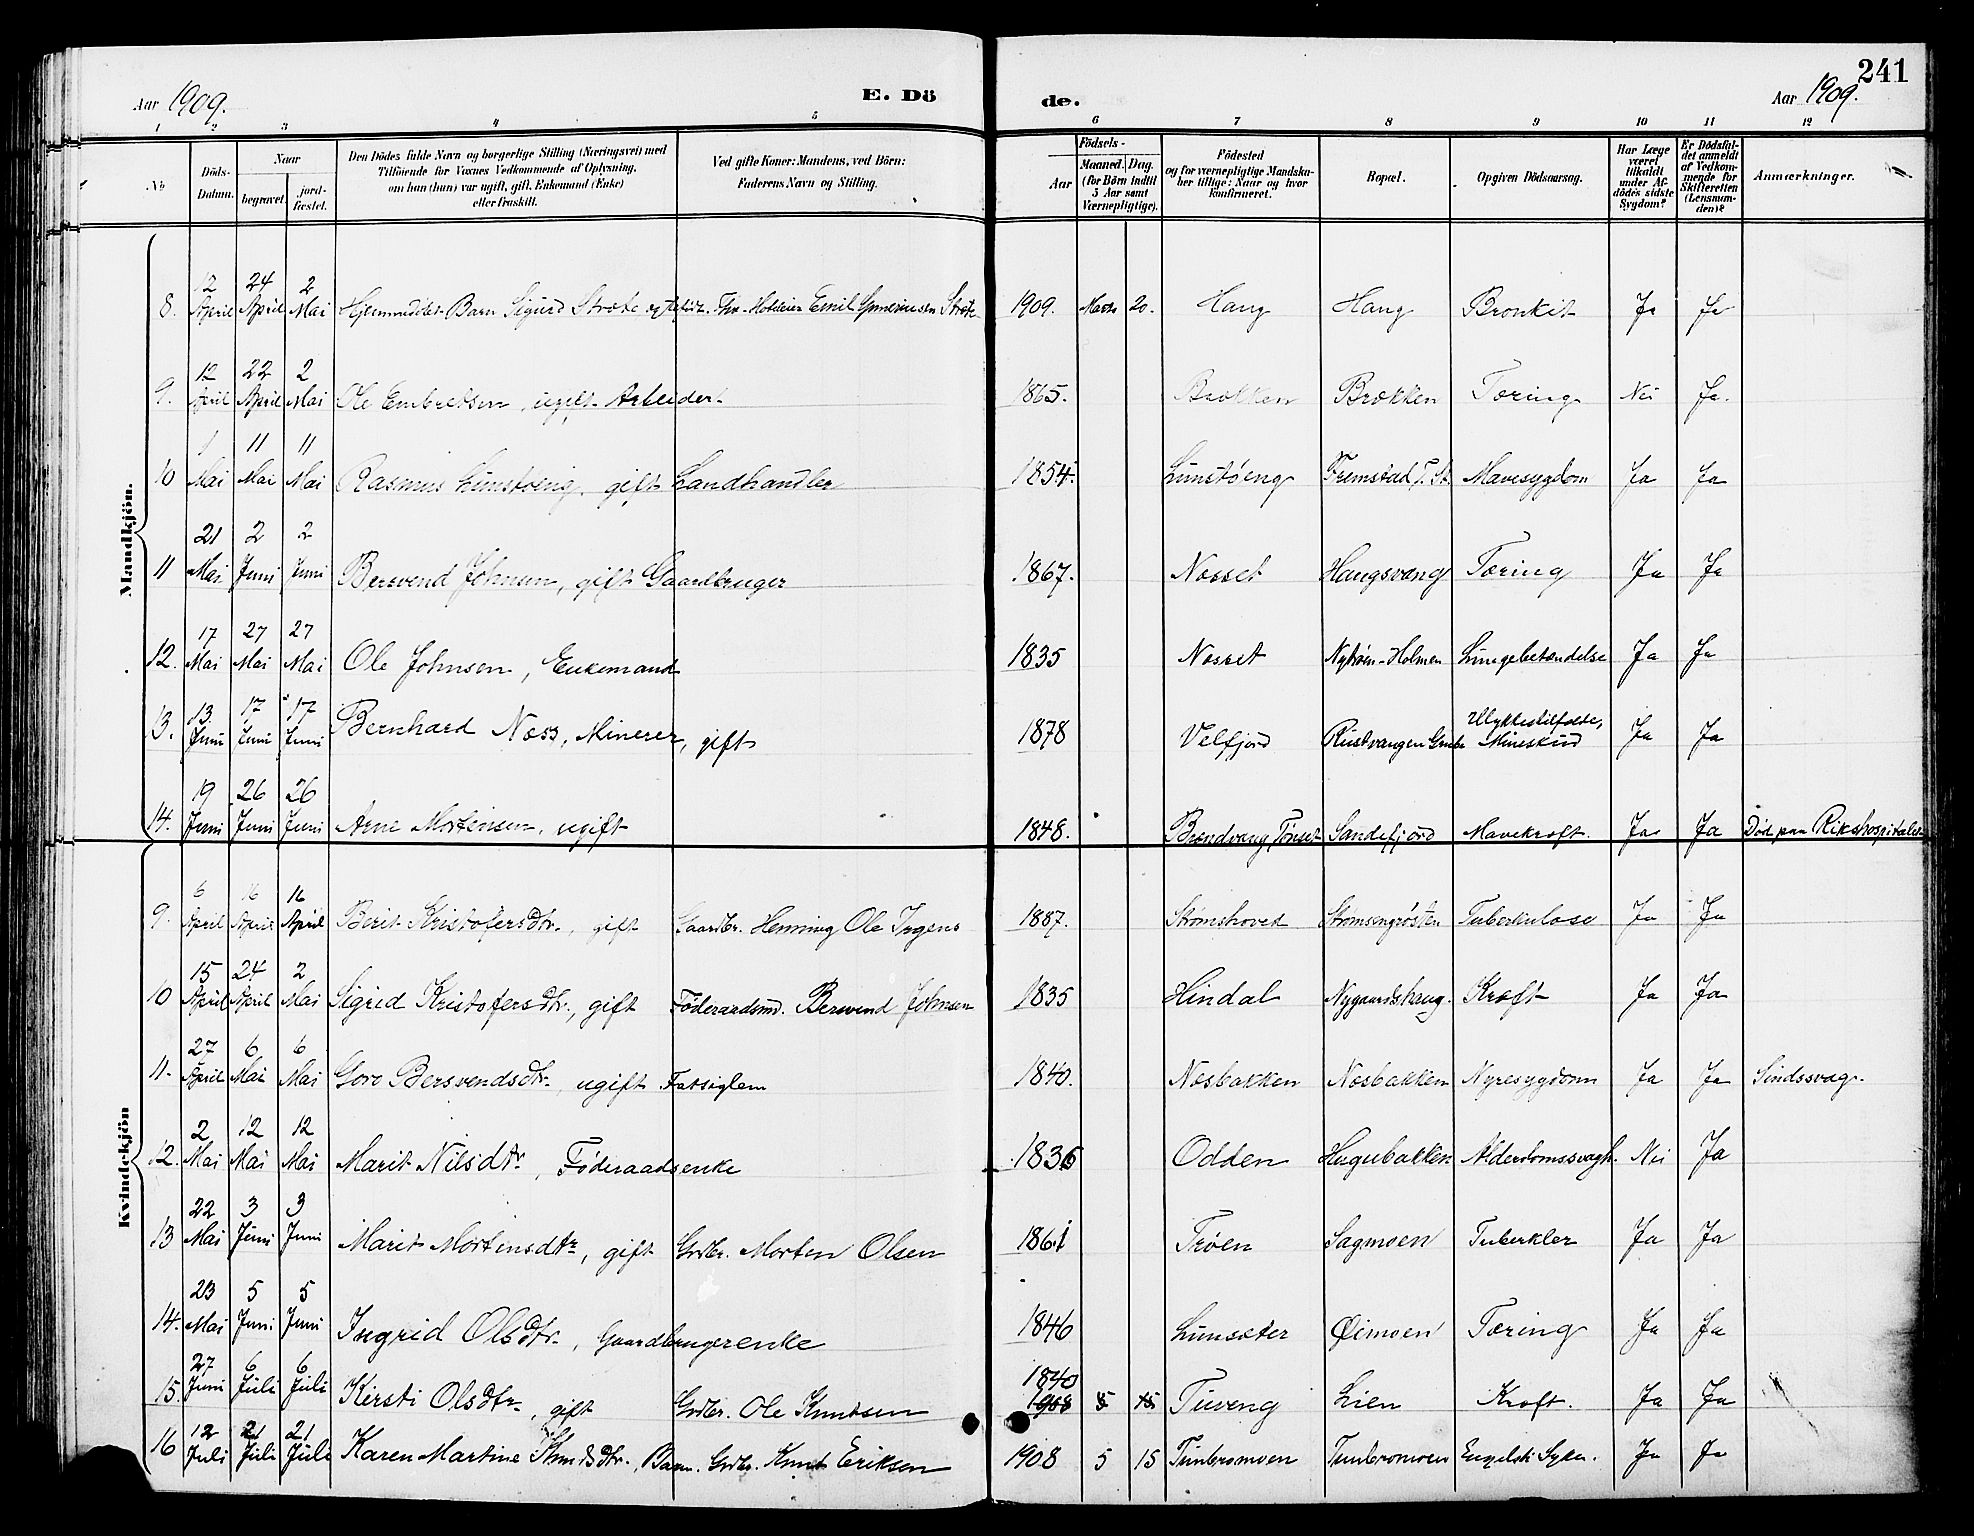 241
Aar 1909.
E. Dö
de.
Aar 1909.
1 2 3 4 5 6 7 8 9 10 11 12
No
Döds-Datum.
Naar
begravet.
jord-fæstet.
Den Dödes fulde Navn og borgerlige Stilling (Næringsvei) med
Tilföiende for Voxnes Vedkommende af Oplysning,
om han (hun) var ugift, gift, Enkemand (Enke)
eller fraskilt.
Ved gifte Koner: Mandens, ved Börn:
Faderens Navn og Stilling.
Födsels-
Aar
Maaned.
Dag.
(for Börn indtil
5 Aar samt
Værnepligtige).
Födested
og for værnepligtige Mandska-
ber tillige: Naar og hvor
konfirmeret.
Bopæl.
Opgiven Dödsaarsag.
Har Læge
været
tilkaldt
under Af-
dödes sidste
Sygdom?
Er Dödsfal-
det anmeldt
af Vedkom-
mende for
Skifteretten
(Lensman-
den)?
Anmærkninger.
Mandkjön.
8. 12 April 24 April 2 Mai Hjemmedøbt Barn Sigurd Strøte Emil 1909. Marts 20. Haug Haug Bronkit Ja Ja
9. 12 April 22 April 2 Mai Ole Embretsen, ugift Arbeider. 1865. Brækken Brækken Tæring Nei Ja.
10 1 Mai 11 Mai 11 Mai Rasmus Lunstøeng, gift Landhandler 1854. Lunstøeng Fremstad T. St. Mavesygdom Ja Ja
11 21 Mai 2 Juni 2 Juni Bersvend Johnsen, gift Gaardbruger 1867. Næsset Haugsvang Tæring Ja Ja
12. 17 Mai 27 Mai 27 Mai Ole Johnsen, Enkemand 1835 Næsset Nytrøen-Holmen Lungebetændelse Ja Ja
13. 13 Juni 17 Juni 17 Juni Bernhard Næss, Minerer, gift 1878 Velfjord Rustvangen Grube Ulykkestilfælde, Mineskud Ja Ja
14. 19 Juni 26 Juni 26 Juni Arne Mortensen, ugift 1848. Brændvang Tønset Sandefjord Mavekræft. Ja Ja Død paa Rikshospitalet
Kvindekjön
9. 6 April 16 April 16 April Berit Kristofersdtr., gift Gaardbr. Henning Ole Ingens 1887. Strømshoved Strømsengrøsten Tuberkulose Ja Ja
10 15 April 24 April 2 Mai Sigrid Kristofersdtr., gift Føderaadsmd. Bersvend Johnsen 1835 Hindal Nygaardshaug. Kræft Ja Ja
11. 27 April 6 Mai 6 Mai Goro Bersvendsdtr., ugift Fatsiglem 1840. Næsbakken Næsbakken Nyresygdom Ja Ja Sindssvag.
12. 2 Mai 12 Mai 12 Mai Marit Nilsdtr, Føderaadsenke 1836 Odden Hagebakken Alderdomssvagh. Nei Ja
13 22 Mai 3 Juni 3 Juni Marit Mortensdtr, gift Grdbr. Morten Olsen 1861 Trøen Sagmoen Tuberkler Ja Ja
14. 23 Mai 5 Juni 5 Juni Ingrid Olsdtr., Gaardbrugerenke 1846 Lunsæter Øimoen Tæring Ja Ja
15. 27 Juni 6 Juli 6 Juli Kirsti Olsdtr., gift Grdbr. Ole Knudsen 1840 1908 5 15 Tuveng Lien Kræft. Ja Ja
16 12 Juli 21 Juli 21 Juli Karen Martine Knudsdtr., Barn. Grdbr. Knut Eriksen 1908 5 15 Tunbromoen Tunbromoen Engelsk Syke. Ja Ja